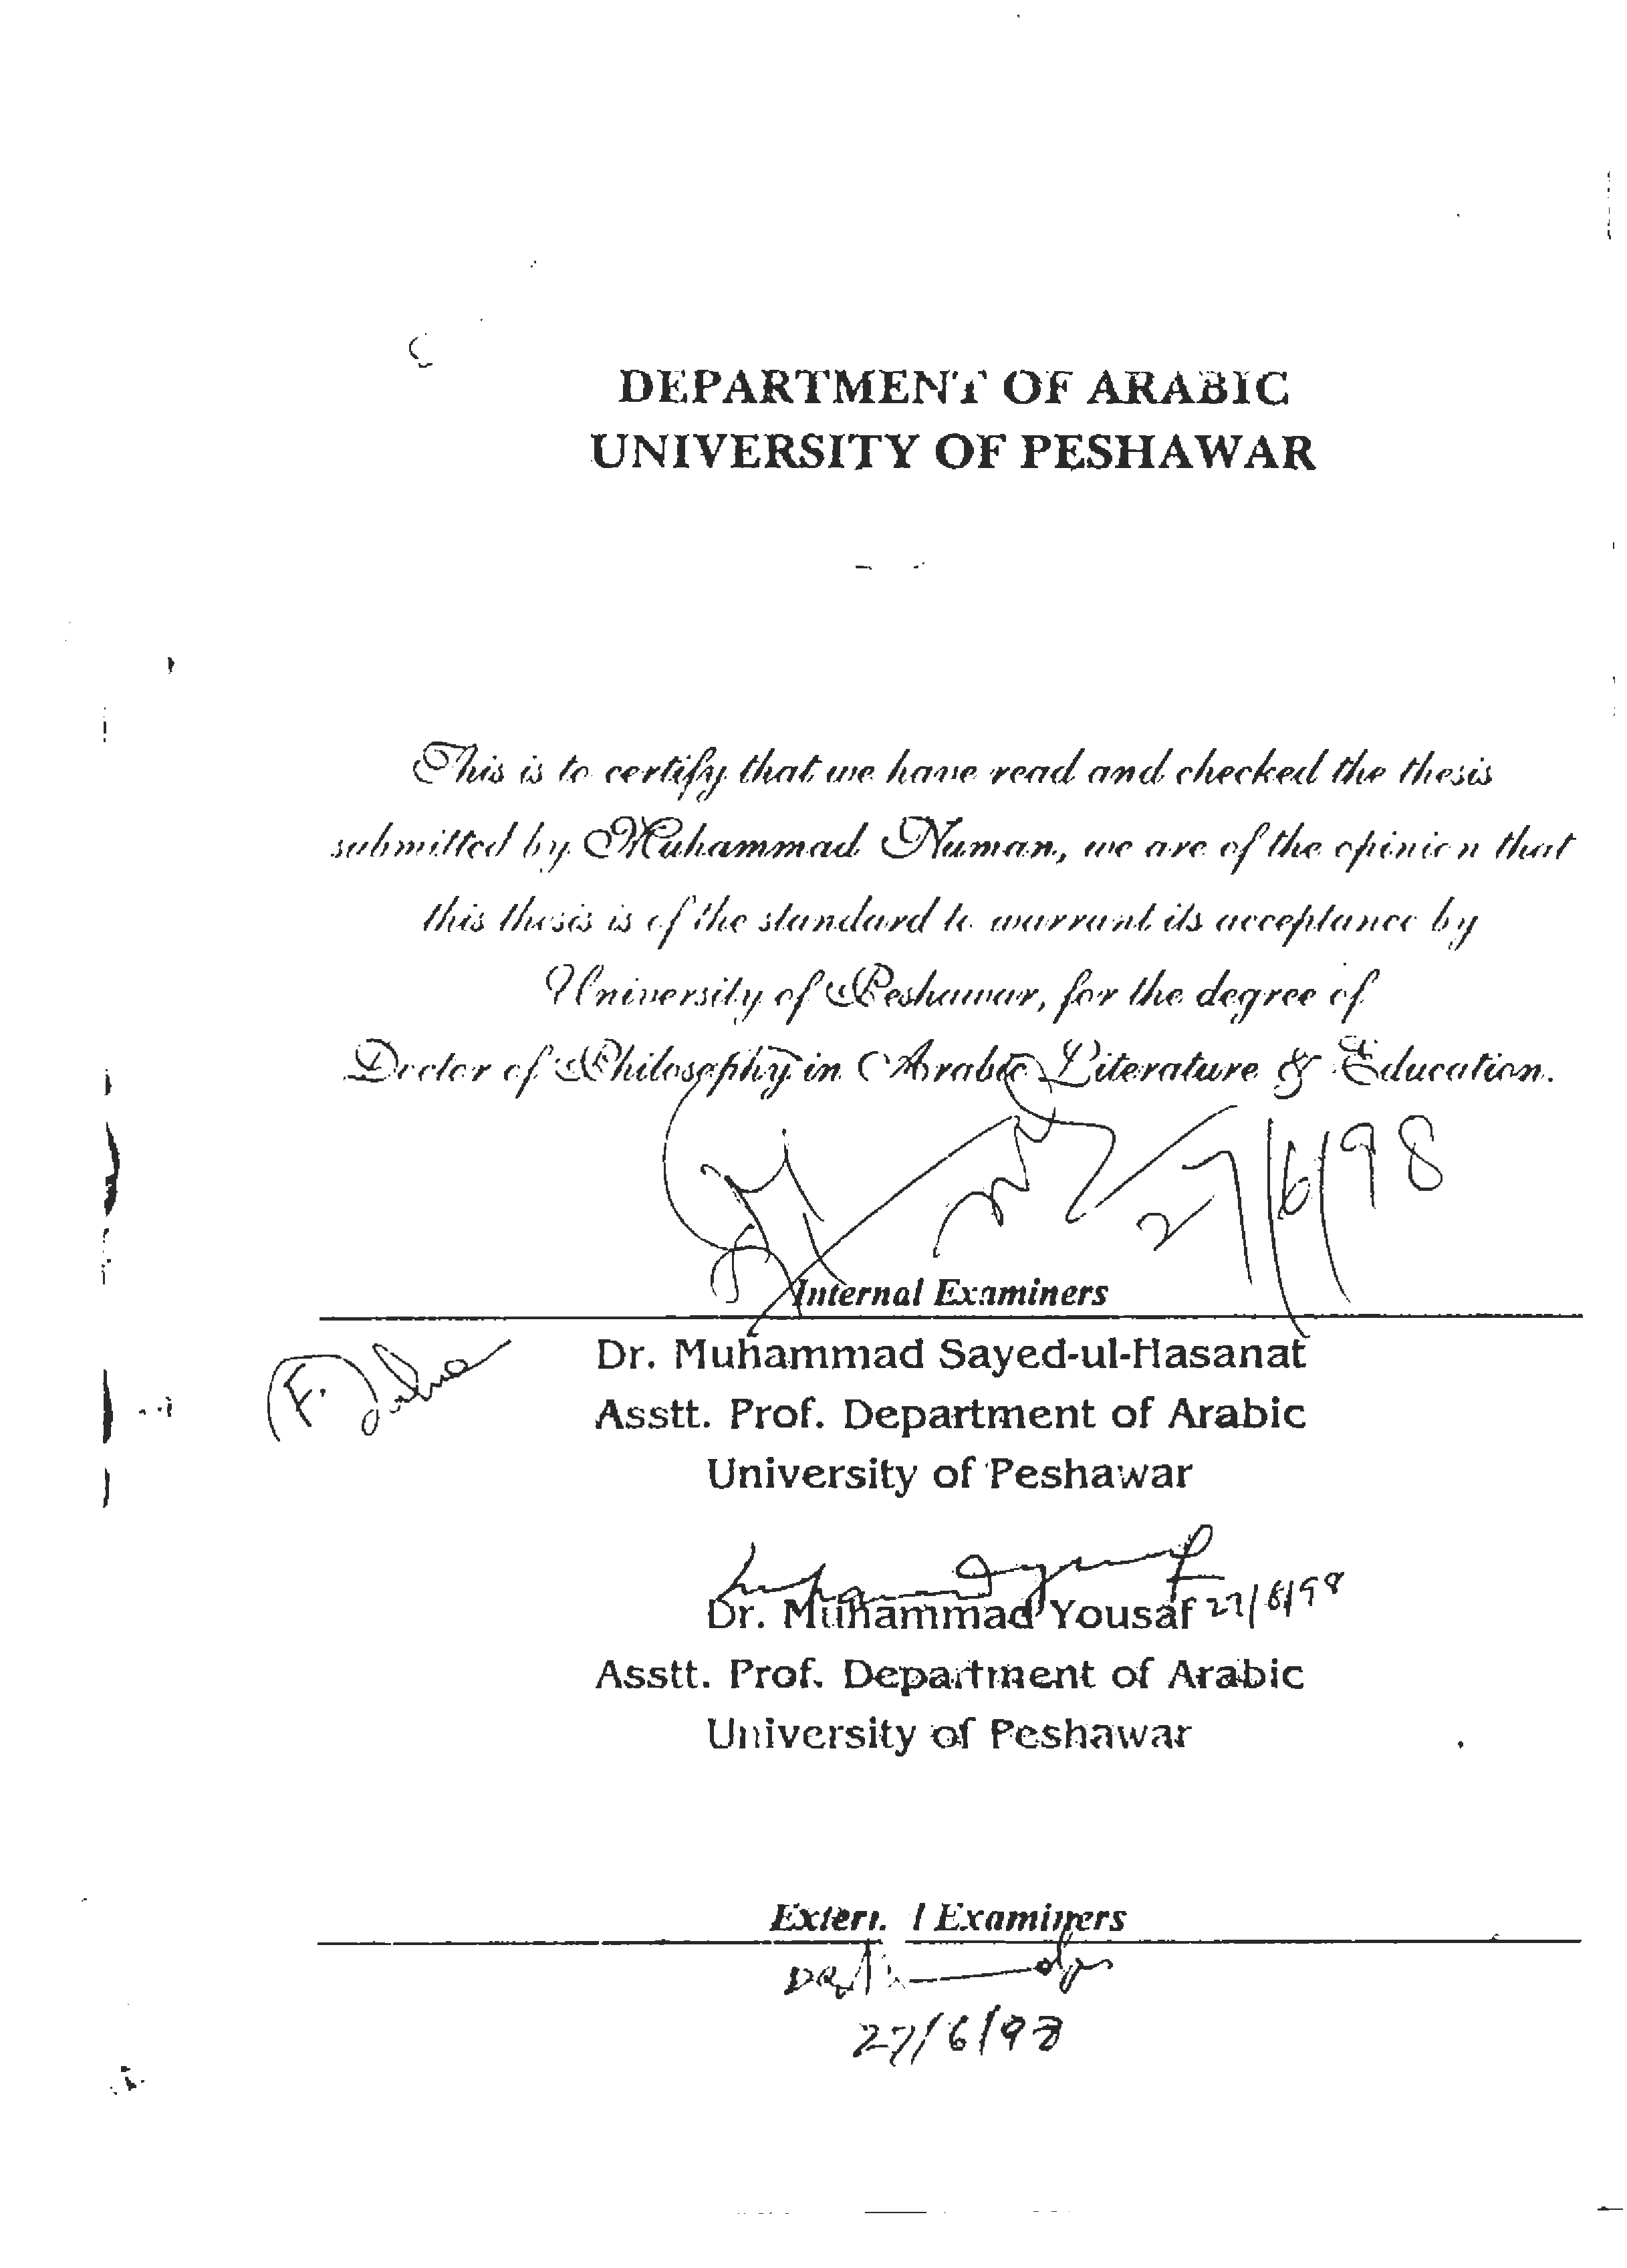 DEPARTMENT OF ARABIC
UNIVERSITY OF PESHAWAR
This is to certify that we have read and checked the thesis
submitted by Muhammad Numan, we are of the opinion that
this thesis is of the standard to warrant its acceptance by
University of Peshawar, for the degree of
Doctor of Philosophy in Arabic Literature & Education.
27/6/98
Internal Examiners
Dr. Muhammad Sayed-ul-Hasanat
Asstt. Prof. Department of Arabic
University of Peshawar
Dr. Muhammad Yousaf 27/6/98
Asstt. Prof. Department of Arabic
University of Peshawar
Examiners
27/6/98